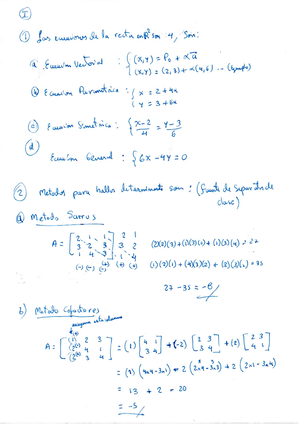 I
① Las ecuaciones de la recta son 4, son:
a Ecuacion Vectorial : { (x,y) = P₀ + αā
(x,y) = (2,3) + α(4,6) -- (Ejemplo)
b Ecuacion Parametrica : { x = 2 + 4α
y = 3 + 6α
c) Ecuacion Simetrica : { x-2/4 = y-3/6
d Ecuacion General : { 6x - 4y = 0
② Metodos para hallar determinante son : (Fuente de Separatas de
clase)
a) Metodo Sarrus
A = [ 2 1 1 ] 2 1
[ 3 2 3 ] 3 2
[ 1 4 3 ] 1 4
(-) (-) (-) (+) (+) (+)
(2)(2)(3)+(1)(3)(1)+(1)(3)(4) = 27
(1)(2)(1)+(4)(3)(2)+(3)(3)(1) = 35
27 - 35 = -8
b) Metodo Cofactores
A = [ (1) 2 3 ]
[ (2) 4 1 ]
[ (2) 3 4 ]
= (1) [ 4 1 / 3 4 ] + (-2) [ 2 3 / 3 4 ] + (2) [ 2 3 / 4 1 ]
= (1) (4x4-3x1) - 2 (2x4-3x3) + 2 (2x1-3x4)
= 13 + 2 - 20
= -5